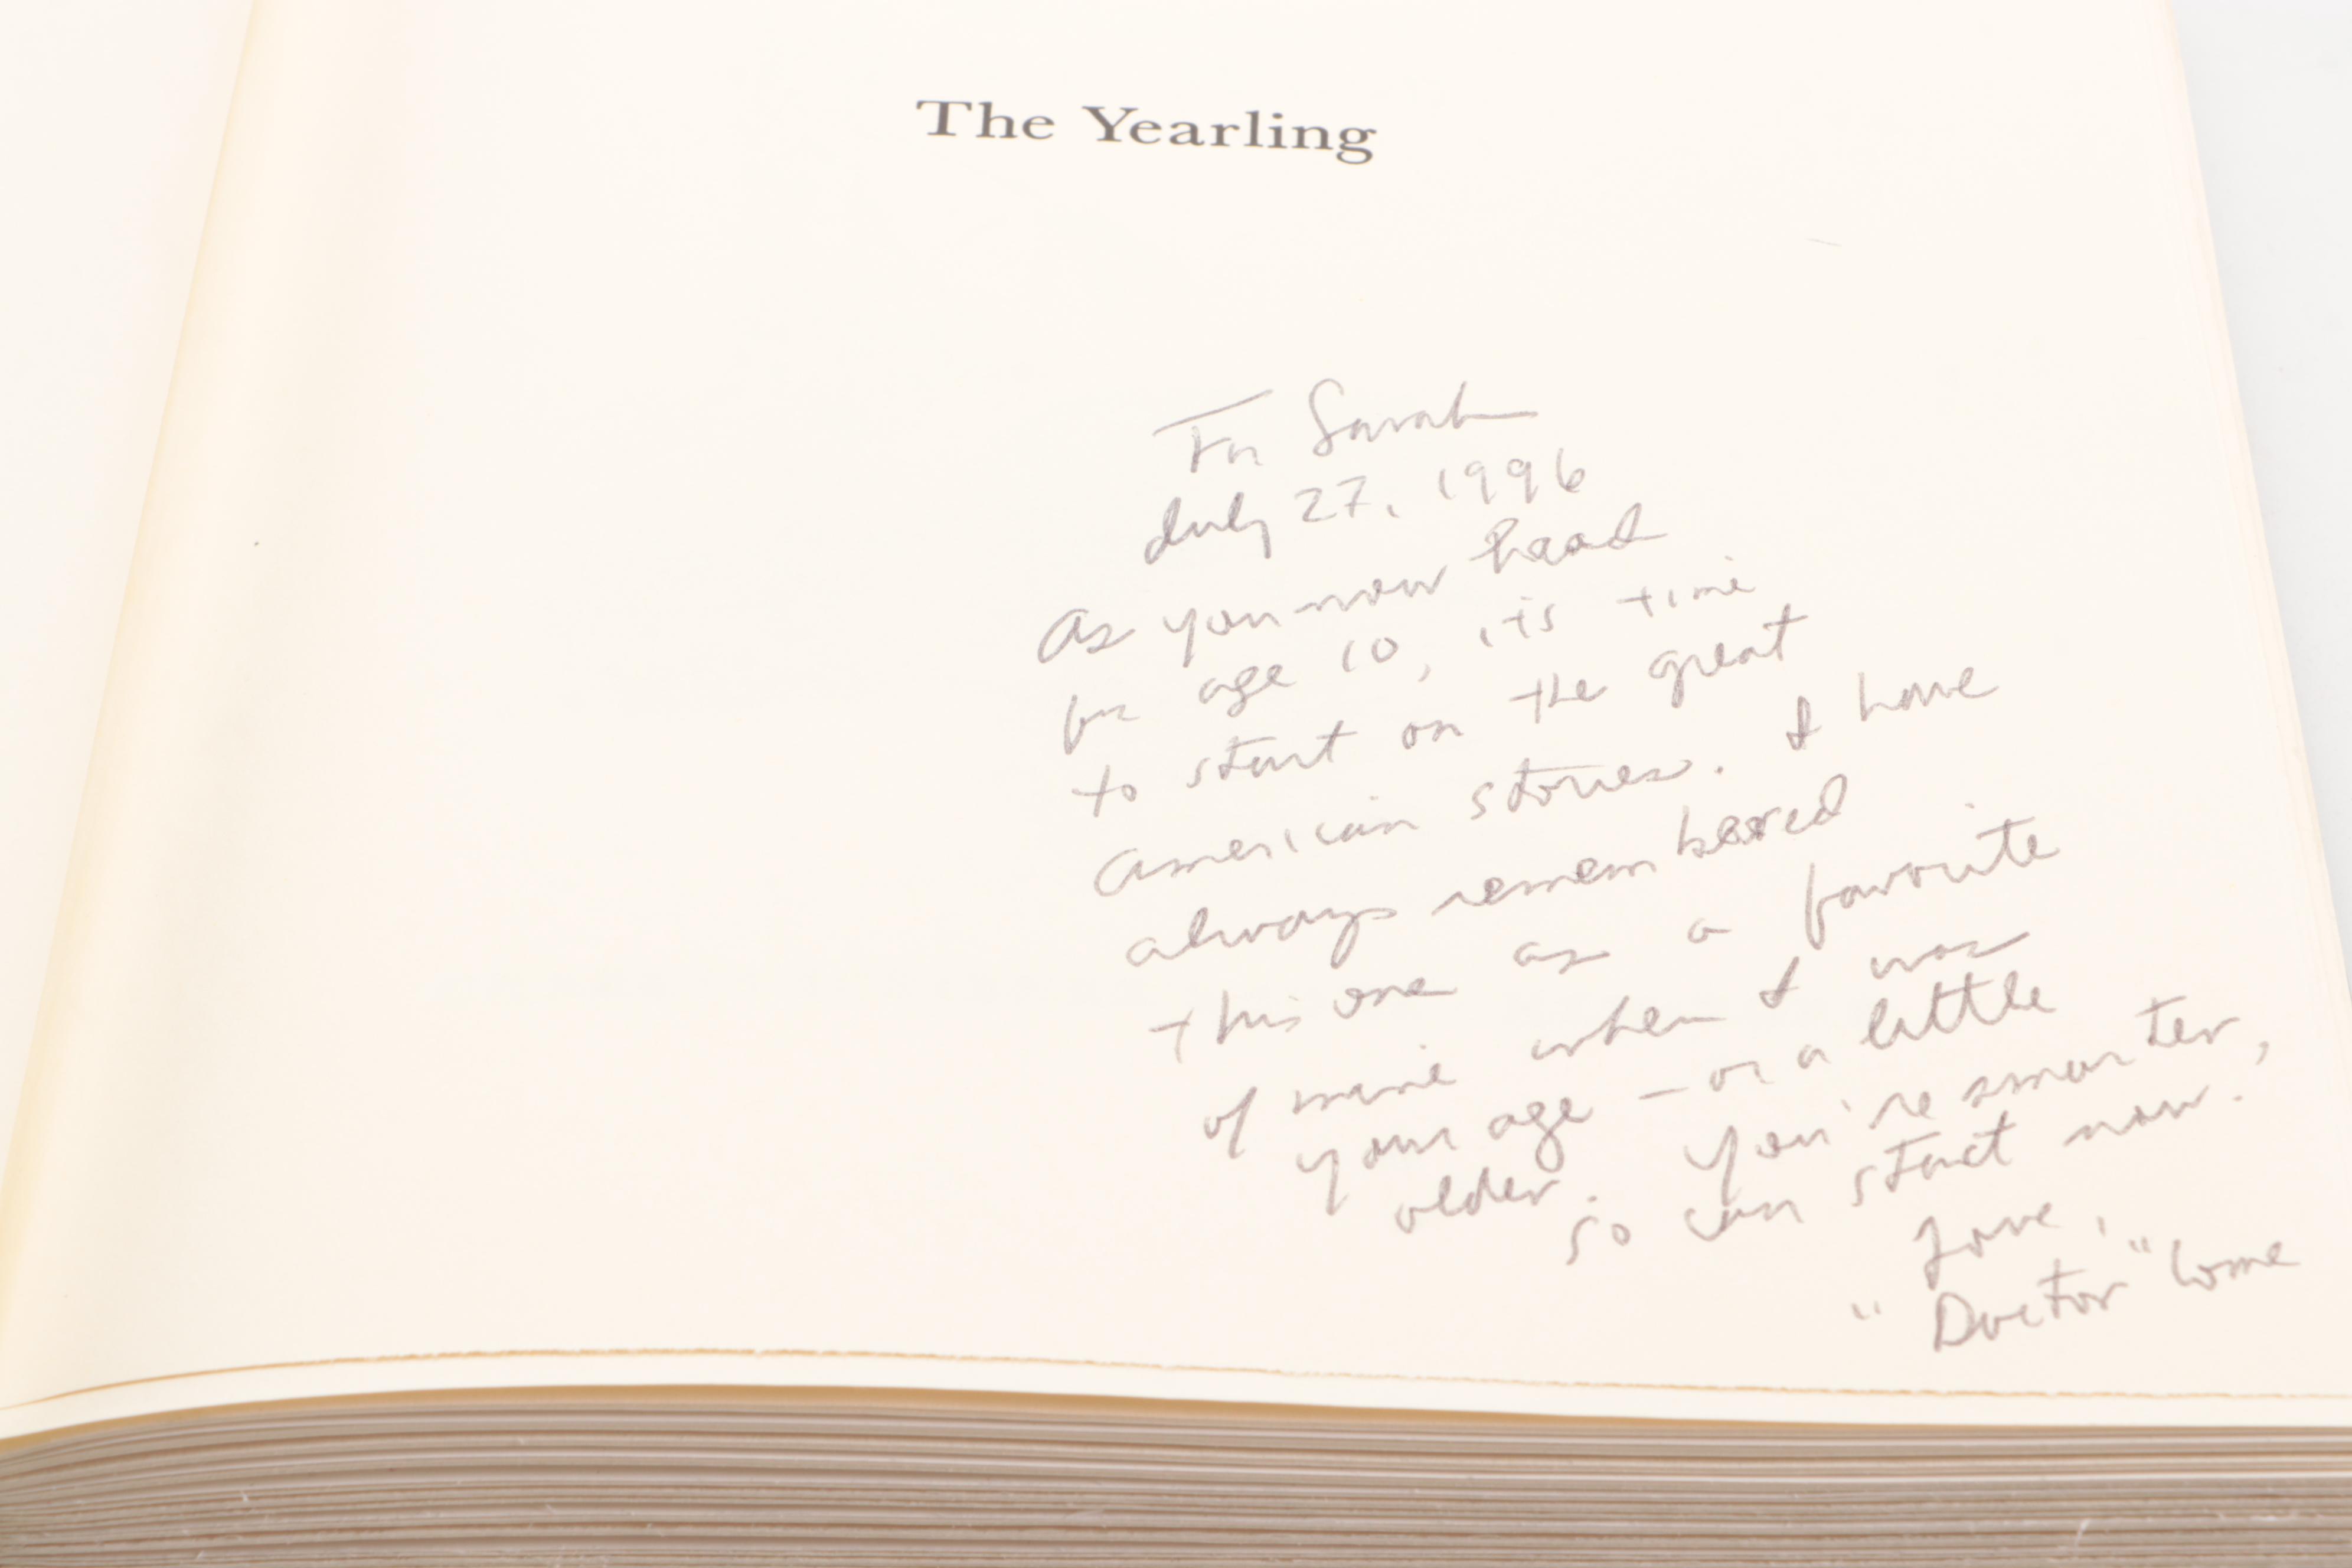 The Yearling
For Sarah
July 27, 1996
As you now head
for age 10, its time
to start on the great
American stories. I have
always remembered
this one as a favorite
of mine when I was
your age – or a little
older. You're smarter,
so can start now.
Love,
"Doctor"